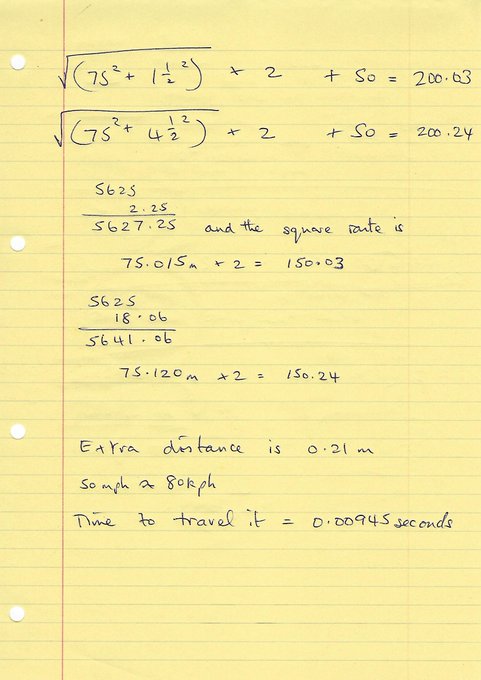 √(75² + 1½²) × 2 + 50 = 200.03
√(75² + 4½²) × 2 + 50 = 200.24
5625
2.25
5627.25 and the square route is
75.015m × 2 = 150.03
5625
18.06
5641.06
75.120m × 2 = 150.24
Extra distance is 0.21m
50mph ≈ 80kph
Time to travel it = 0.00945 seconds